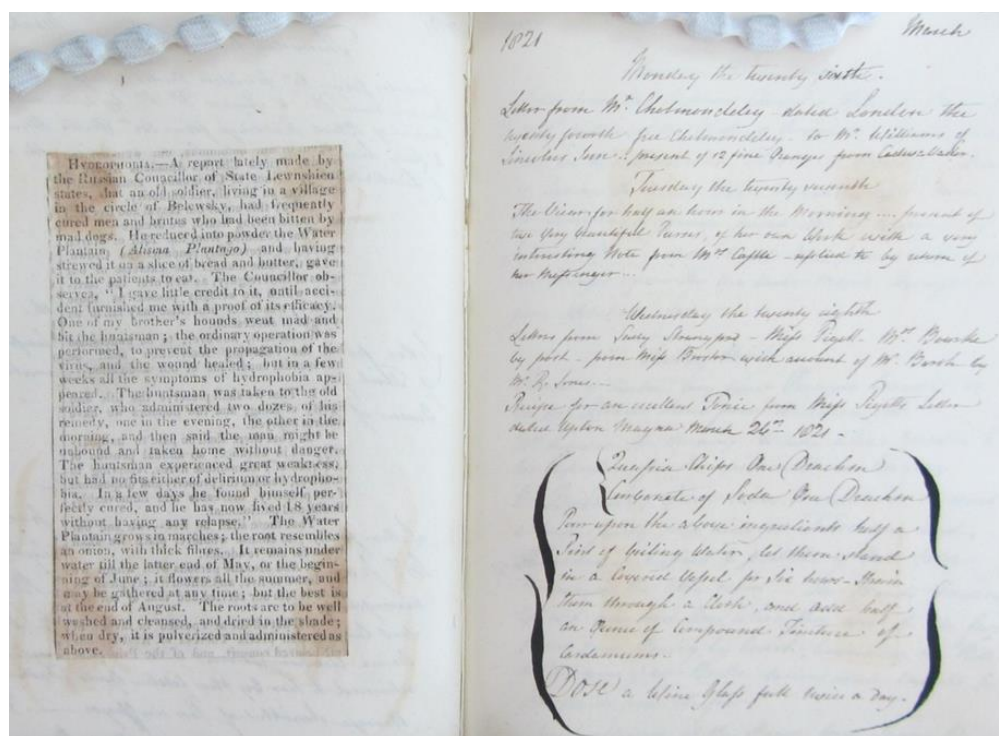 HYDROPHOBIA.—A report lately made by
the Russian Councillor of State Lewshien
states, that an old soldier, living in a village
in the circle of Belewsky, had frequently
cured men and brutes who had been bitten by
mad dogs. He reduced into powder the Water
Plantain (Alisma Plantajo) and having
strewed it on a slice of bread and butter, gave
it to the patients to eat. The Councillor ob-
serves, "I gave little credit to it, until acci-
dent furnished me with a proof of its efficacy.
One of my brother's hounds went mad and
bit the huntsman; the ordinary operation was
performed, to prevent the propagation of the
virus, and the wound healed; but in a few
weeks all the symptoms of hydrophobia ap-
peared. The huntsman was taken to the old
soldier, who administered two dozes, of his
remedy, one in the evening, the other in the
morning, and then said the man might be
unbound and taken home without danger.
The huntsman experienced great weakness,
but had no fits either of delirium or hydropho-
bia. In a few days he found himself per-
fectly cured, and he has now lived 18 years
without having any relapse." The Water
Plantain grows in marches; the root resembles
an onion, with thick fibres. It remains under
water till the latter end of May, or the begin-
ning of June; it flowers all the summer, and
may be gathered at any time; but the best is
at the end of August. The roots are to be well
washed and cleansed, and dried in the shade;
when dry, it is pulverized and administered as
above.
1821 March
Monday the twenty sixth.
Letter from Mr. Cholmondeley dated London the
twenty fourth free Cholmondeley - to Mr. Williams of
Lincolns Inn .. present of 12 fine Oranges from
Tuesday the twenty seventh
The Vicar for half an hour in the Morning ... present of
two very beautiful Purses, of her own Work with a very
interesting Note from Mrs - replied to by return of
her Messenger ...
Wednesday the twenty eighth
Letters from - Miss Pigott - Mrs Bourke
by post - from Miss with account of Mr. by
Mr. R. Jones. -
Recipe for an excellent Tonic from Miss Pigotts Letter
dated Upton Magna March 24th 1821 -
Quassia Chips One Drachm
Carbonate of Soda One Drachm
Pour upon the above ingredients half a
Pint of boiling Water, let them stand
in a Covered Vessel for Six hours - Strain
them through a Cloth, and add half
an Ounce of Compound Tincture of
Cardamums.
Dose a Wine Glass full twice a Day.